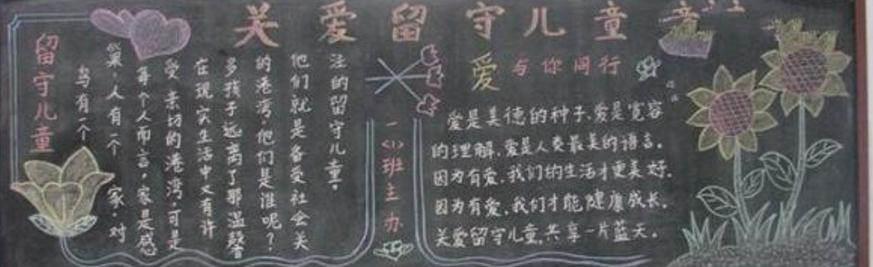 关爱留守儿童
留守儿童
鸟有一个
巢，人有一个家，对
每个人而言，家是感
受亲切的港湾，可是
在现实生活中又有许
多孩子远离了那温馨
的港湾，他们是谁呢？
他们就是备受社会关
注的留守儿童。
一<1>班主办
爱与你同行
爱是美德的种子，爱是宽容
的理解，爱是人类最美的语言。
因为有爱，我们的生活才更美好。
因为有爱，我们才能健康成长。
关爱留守儿童，共享一片蓝天。